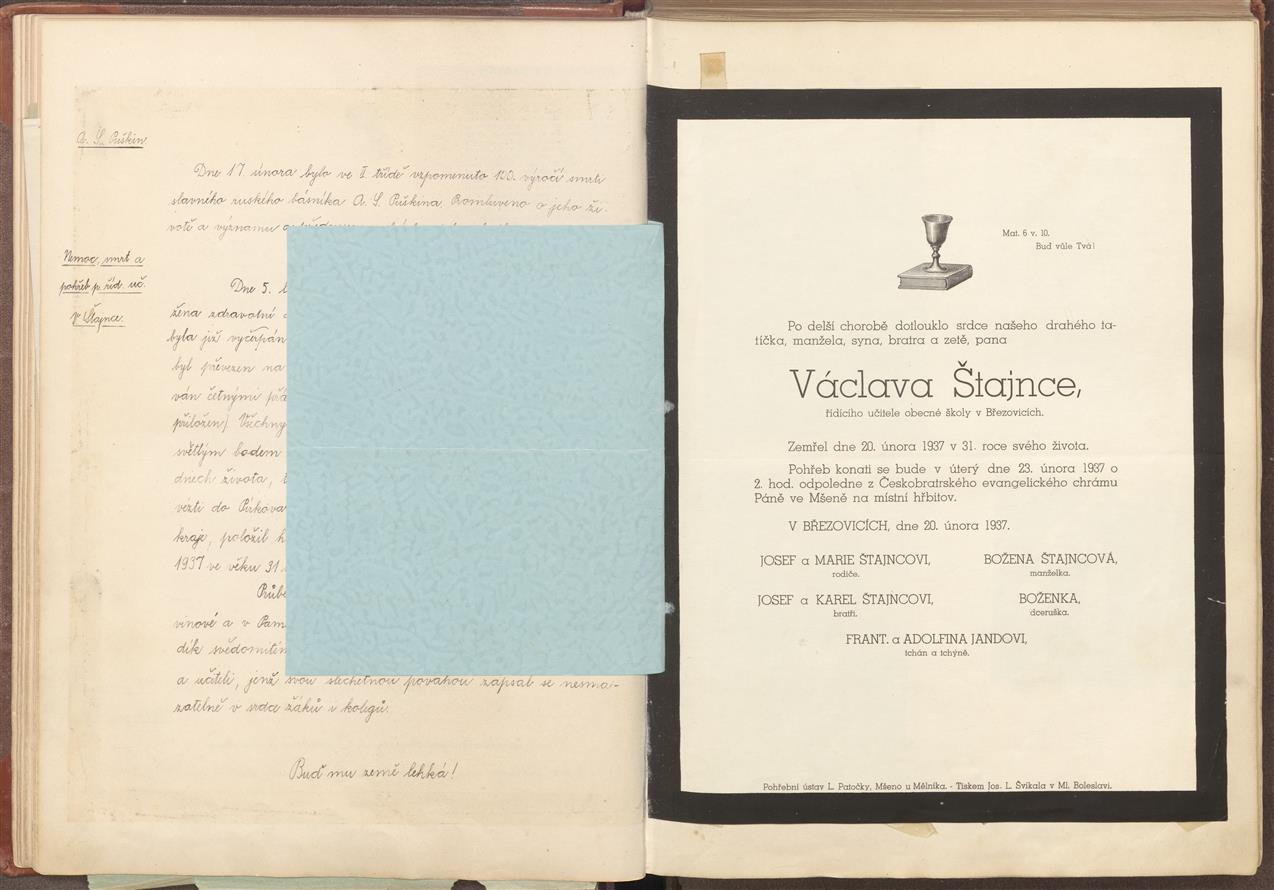 A. S. Puškin.
Dne 17. února bylo ve II. třídě vzpomenuto 100. výročí smrti
slavného ruského básníka A. S. Puškina. Promluveno o jeho ži-
votě a významu a
Nemoc, smrt a
pohřeb p. říd. uč.
V. Štajnce.
Dne 5.
žena zdravotní
byla již vyčerpán
byl převezen na
ván četnými
přiložen). Všechny
světlým bodem
dnech života,
vézti do
kraje, položil
1937 ve věku 31
Průbě
vinové a v Pam
dík svědomitém
a učiteli, jenž svou šlechetnou povahou zapsal se nesma-
zatelně v srdce žáků i kolegů.
Buď mu země lehká!
Mat. 6 v. 10.
Buď vůle Tvá!
Po delší chorobě dotlouklo srdce našeho drahého ta-
tíčka, manžela, syna, bratra a zetě, pana
Václava Štajnce,
řídícího učitele obecné školy v Březovicích.
Zemřel dne 20. února 1937 v 31. roce svého života.
Pohřeb konati se bude v úterý dne 23. února 1937 o
2. hod. odpoledne z Českobratrského evangelického chrámu
Páně ve Mšeně na místní hřbitov.
V BŘEZOVICÍCH, dne 20. února 1937.
JOSEF a MARIE ŠTAJNCOVI, BOŽENA ŠTAJNCOVÁ,
rodiče. manželka.
JOSEF a KAREL ŠTAJNCOVI, BOŽENKA,
bratři. dceruška.
FRANT. a ADOLFINA JANDOVI,
tchán a tchýně.
Pohřební ústav L. Patočky, Mšeno u Mělníka. - Tiskem Jos. L. Švíkala v Ml. Boleslavi.